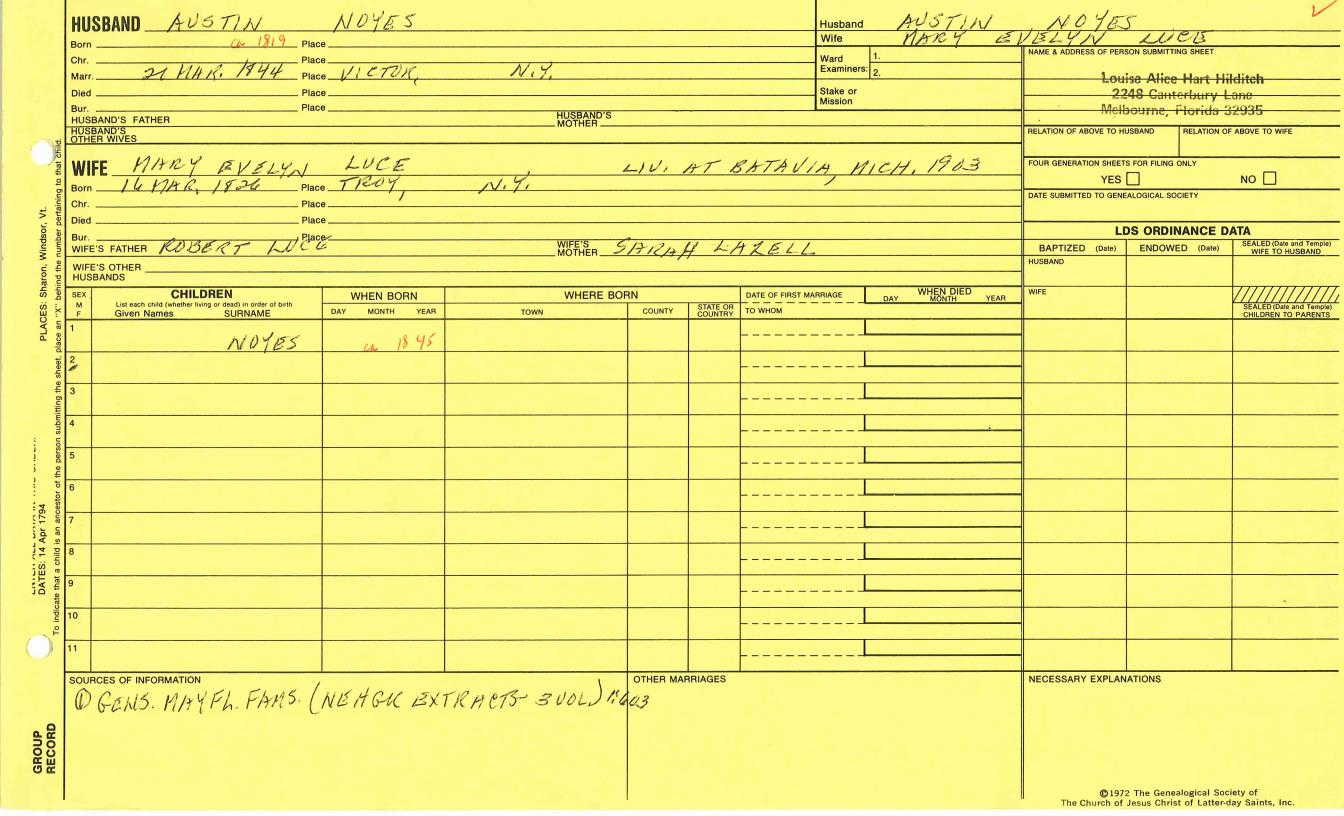 HUSBAND AUSTIN NOYES
Born ca 1819 Place
Chr. Place
Marr. 21 MAR. 1844 Place VICTOR, N.Y.
Died Place
Bur. Place
HUSBAND'S FATHER HUSBAND'S MOTHER
HUSBAND'S OTHER WIVES
Husband AUSTIN NOYES
Wife MARY EVELYN LUCE
Ward Examiners: 1. 2.
Stake or Mission
NAME & ADDRESS OF PERSON SUBMITTING SHEET
Louise Alice Hart Hilditch
2248 Canterbury Lane
Melbourne, Florida 32935
RELATION OF ABOVE TO HUSBAND RELATION OF ABOVE TO WIFE
FOUR GENERATION SHEETS FOR FILING ONLY
YES NO
DATE SUBMITTED TO GENEALOGICAL SOCIETY
WIFE MARY EVELYN LUCE, LIV. AT BATAVIA, MICH. 1903
Born 16 MAR. 1826 Place TROY, N.Y.
Chr. Place
Died Place
Bur. Place
WIFE'S FATHER ROBERT LUCE WIFE'S MOTHER SARAH LAZELL
WIFE'S OTHER HUSBANDS
LDS ORDINANCE DATA
BAPTIZED (Date) ENDOWED (Date) SEALED (Date and Temple) WIFE TO HUSBAND
HUSBAND
WIFE
SEALED (Date and Temple) CHILDREN TO PARENTS
SEX M F CHILDREN WHEN BORN WHERE BORN DATE OF FIRST MARRIAGE WHEN DIED
List each child (whether living or dead) in order of birth
Given Names SURNAME DAY MONTH YEAR TOWN COUNTY STATE OR COUNTRY TO WHOM DAY MONTH YEAR
1 NOYES ca 1845
2
3
4
5
6
7
8
9
10
11
SOURCES OF INFORMATION
① GENS. MAYFL. FAMS. (NEHGR EXTRACTS 3 VOL) 1:603
OTHER MARRIAGES
NECESSARY EXPLANATIONS
©1972 The Genealogical Society of
The Church of Jesus Christ of Latter-day Saints, Inc.
PLACES: Sharon, Windsor, Vt.
DATES: 14 Apr 1794
To indicate that a child is an ancestor of the person submitting the sheet, place an "X" behind the number pertaining to that child.
GROUP RECORD